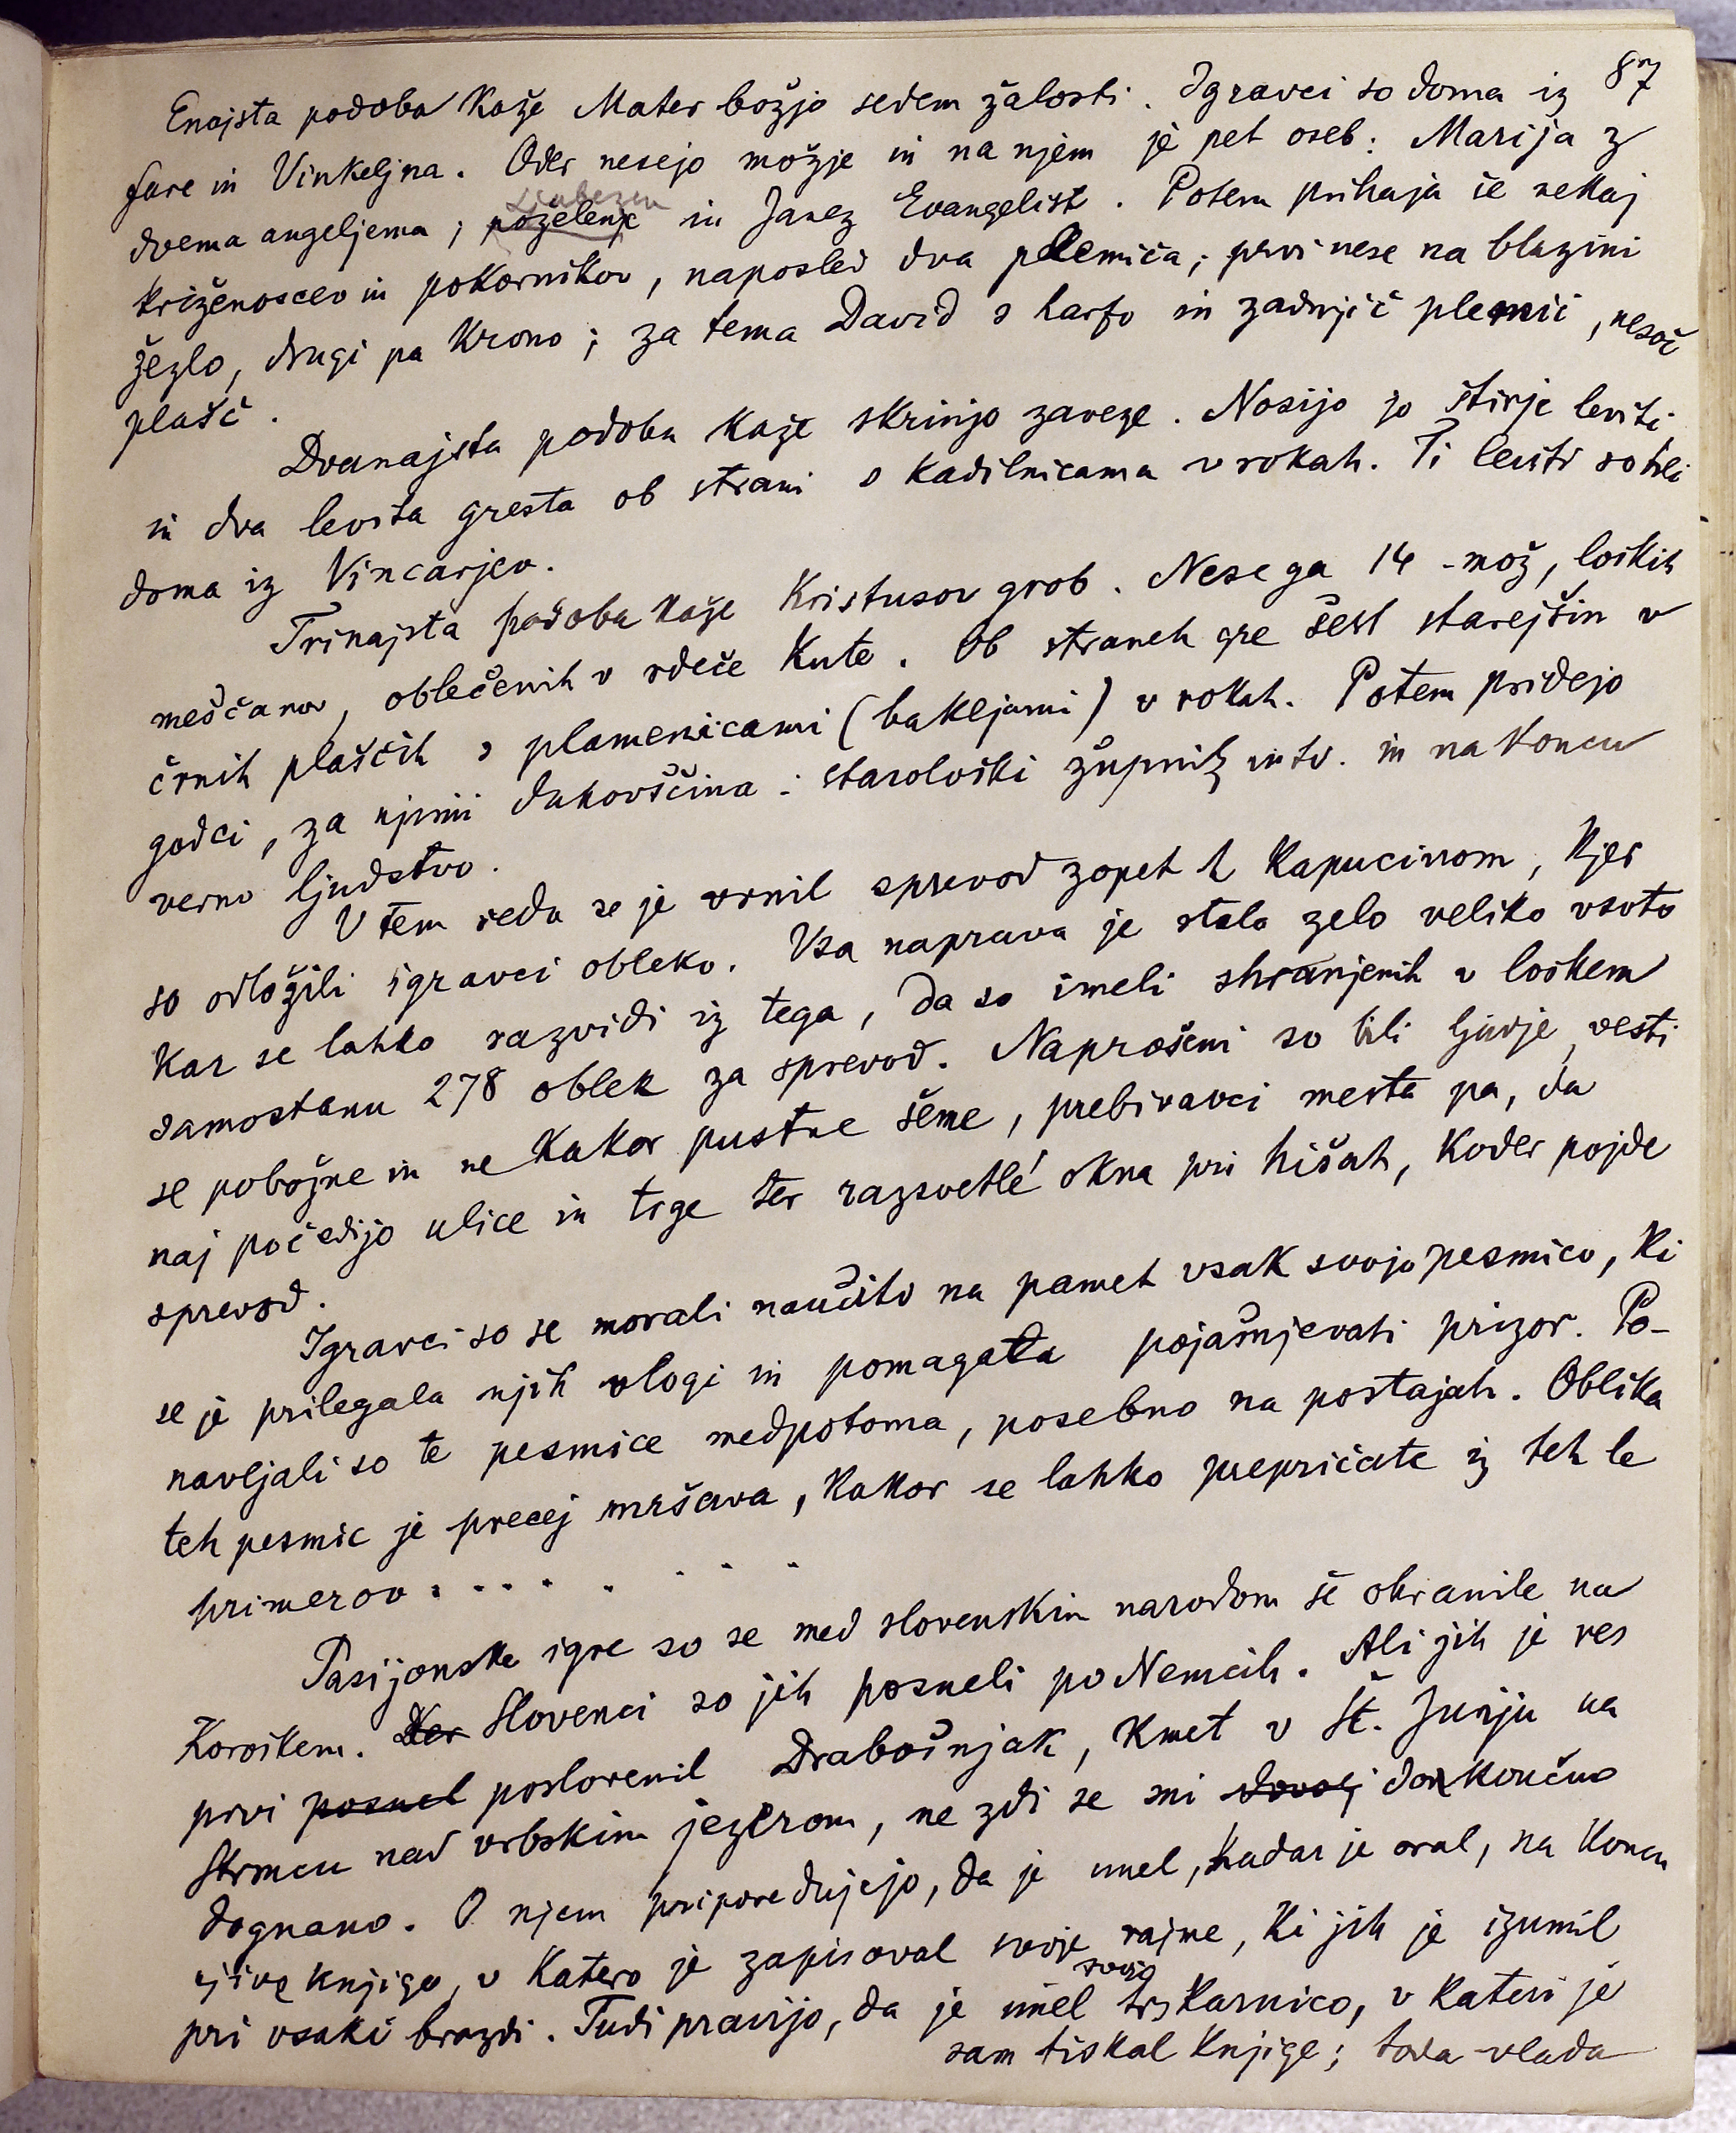 87
Enajsta podoba kaže Mater božjo sedem žalosti. Igravci so doma iz
fare in Vinkeljna. Oder nesejo možje in na njem je pet oseb: Marija z
Ljubezen
dvema angeljema, poželenje in Janez Evangelist. Potem prihaja še nekaj
križenoscev in pokornikov, naposled dva plemiča; prvi nese na blazini
žezlo, drugi pa krono; za tema David s harfo in zadnjič plemič, nesoč
plašč.
Dvanajsta podoba kaže skrinjo zaveze. Nosijo jo štirje leviti
in dva levita gresta ob strani s kadilnicama v rokah. Ti leviti so bili
doma iz Vincarjev.
Trinajsta podoba kaže Kristusov grob. Nese ga 14 mož, loških
meščanov, oblečenih v rdeče kute. Ob straneh gre šest starejšin v
črnih plaščih s plamenicami (bakljami) v rokah. Potem pridejo
godci, za njimi duhovščina: starološki župnik in td. in na koncu
verno ljudstvo.
V tem redu se je vrnil sprevod zopet h kapucinom, kjer
so odložili igravci obleko. Vsa naprava je stala zelo veliko vsoto
kar se lahko razvidi iz tega, da so imeli shranjenih v loškem
samostanu 278 oblek za sprevod. Naprošeni so bili ljudje, vesti
se pobožne in ne kakor pustne šeme, prebivavci mesta pa, da
naj počedijo ulice in trge ter razsvetlé okna pri hišah, koder pojde
sprevod.
Igravci so se morali naučiti na pamet vsak svojo pesmico, ki
se je prilegala njih vlogi in pomagala pojašnjevati prizor. Po-
navljali so te pesmice medpotoma, posebno na postajah. Oblika
teh pesmic je precej mršava, kakor se lahko prepričate iz teh le
primerov . . . . . . . .
Pasijonske igre so se med slovenskim narodom še ohranile na
Koroškem. Ker Slovenci so jih posneli po Nemcih. Ali jih je res
prvi posnel poslovenil Drabošnjak, kmet v Št. Jurju na
Strmcu nad vrbskim jezerom, ne zdi se mi dovolj dokončno
dognano. O njem pripovedujejo, da je imel, kadar je oral, na koncu
njive knjigo, v katero je zapisoval svoje rajme, ki jih je izumil
svojo
pri vsaki brazdi. Tudi pravijo, da je imel tiskarnico, v kateri je
sam tiskal knjige; toda vlada